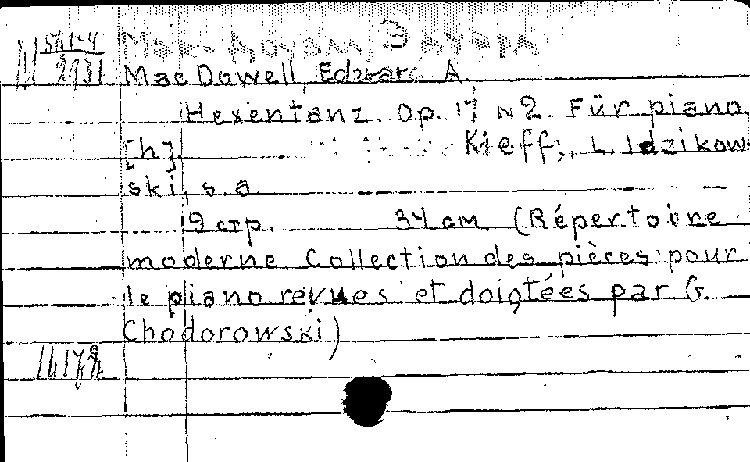 Мак-Доуэлл, Эдуард
Ш 5К1-4
2931
MacDowell, Edward A.
Hexentanz. Op. 17 N 2. Für piano
[h] Kieff, L. Idzikow-
ski, s. a.
9 стр. 34 см (Répertoire
moderne Collection des pièces pour
le piano revues et doigtées par G.
Chodorowski)